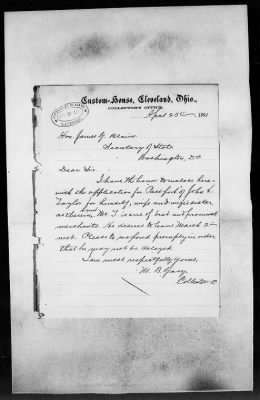 Custom-House, Cleveland, Ohio,
COLLECTOR'S OFFICE,
April 25th 1881
Hon. James G. Blaine
Secretary of State
Washington, D.C
Dear Sir.
I have the honor to enclose here-
with the application for Passport of John L.
Taylor for himself, wife and wife's sister
as therein. Mr. T. is one of best and prominent
merchants. He desires to leave March 2nd
next. Please to respond promptly in order
that he may not be delayed
I am most respectfully yours,
M. B. Gary
Collector